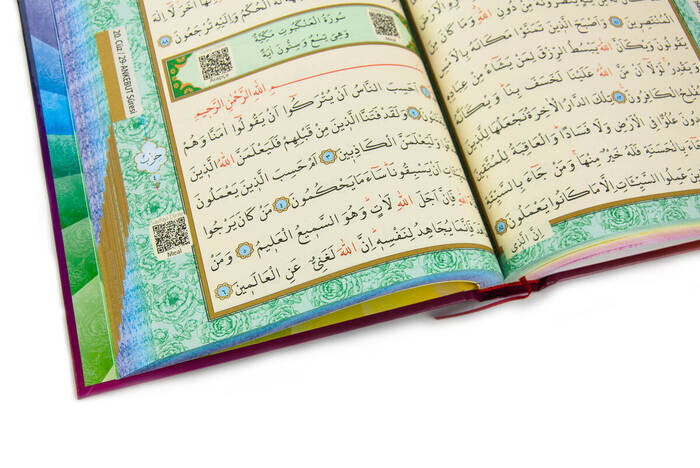 يَنْصُرُونَهُ مِنْ دُونِ اللّٰهِ وَمَا كَانَ
الْمُنْتَصِرِينَ ﴿٨١﴾ وَاَصْبَحَ الَّذِينَ تَمَنَّوْا مَكَانَهُ بِالْاَمْسِ
يَقُولُونَ وَيْكَاَنَّ اللّٰهَ يَبْسُطُ الرِّزْقَ لِمَنْ يَشَاءُ مِنْ
وَيَقْدِرُ لَوْلَا اَنْ مَنَّ اللّٰهُ عَلَيْنَا لَخَسَفَ بِنَا وَيْكَاَنَّهُ
يُفْلِحُ الْكَافِرُونَ ﴿٨٢﴾ تِلْكَ الدَّارُ الْاٰخِرَةُ نَجْعَلُهَا
يُرِيدُونَ عُلُوًّا فِي الْاَرْضِ وَلَا فَسَادًا وَالْعَاقِبَةُ لِلْمُتَّقِينَ
جَاءَ بِالْحَسَنَةِ فَلَهُ خَيْرٌ مِنْهَا وَمَنْ جَاءَ بِالسَّيِّئَةِ
الَّذِينَ عَمِلُوا السَّيِّئَاتِ اِلَّا مَا كَانُوا يَعْمَلُونَ ﴿٨٤﴾
اِنَّ الَّذِي
لَهُ الْحُكْمُ وَاِلَيْهِ تُرْجَعُونَ ﴿٨٨﴾
سُورَةُ الْعَنْكَبُوتِ مَكِّيَّةٌ
وَهِيَ تِسْعٌ وَسِتُّونَ اٰيَةً
بِسْمِ اللّٰهِ الرَّحْمٰنِ الرَّحِيمِ
اَحَسِبَ النَّاسُ اَنْ يُتْرَكُوا اَنْ يَقُولُوا اٰمَنَّا وَهُمْ
وَلَقَدْ فَتَنَّا الَّذِينَ مِنْ قَبْلِهِمْ فَلَيَعْلَمَنَّ اللّٰهُ الَّذِينَ
وَلَيَعْلَمَنَّ الْكَاذِبِينَ ﴿٣﴾ اَمْ حَسِبَ الَّذِينَ يَعْمَلُونَ
اَنْ يَسْبِقُونَا سَاءَ مَا يَحْكُمُونَ ﴿٤﴾ مَنْ كَانَ يَرْجُوا
اللّٰهِ فَاِنَّ اَجَلَ اللّٰهِ لَاٰتٍ وَهُوَ السَّمِيعُ الْعَلِيمُ ﴿٥﴾ وَمَنْ
فَاِنَّمَا يُجَاهِدُ لِنَفْسِهِ اِنَّ اللّٰهَ لَغَنِيٌّ عَنِ الْعَالَمِينَ ﴿٦﴾
20. Cüz / 29-ANKEBUT Sûresi
حزب
Meal